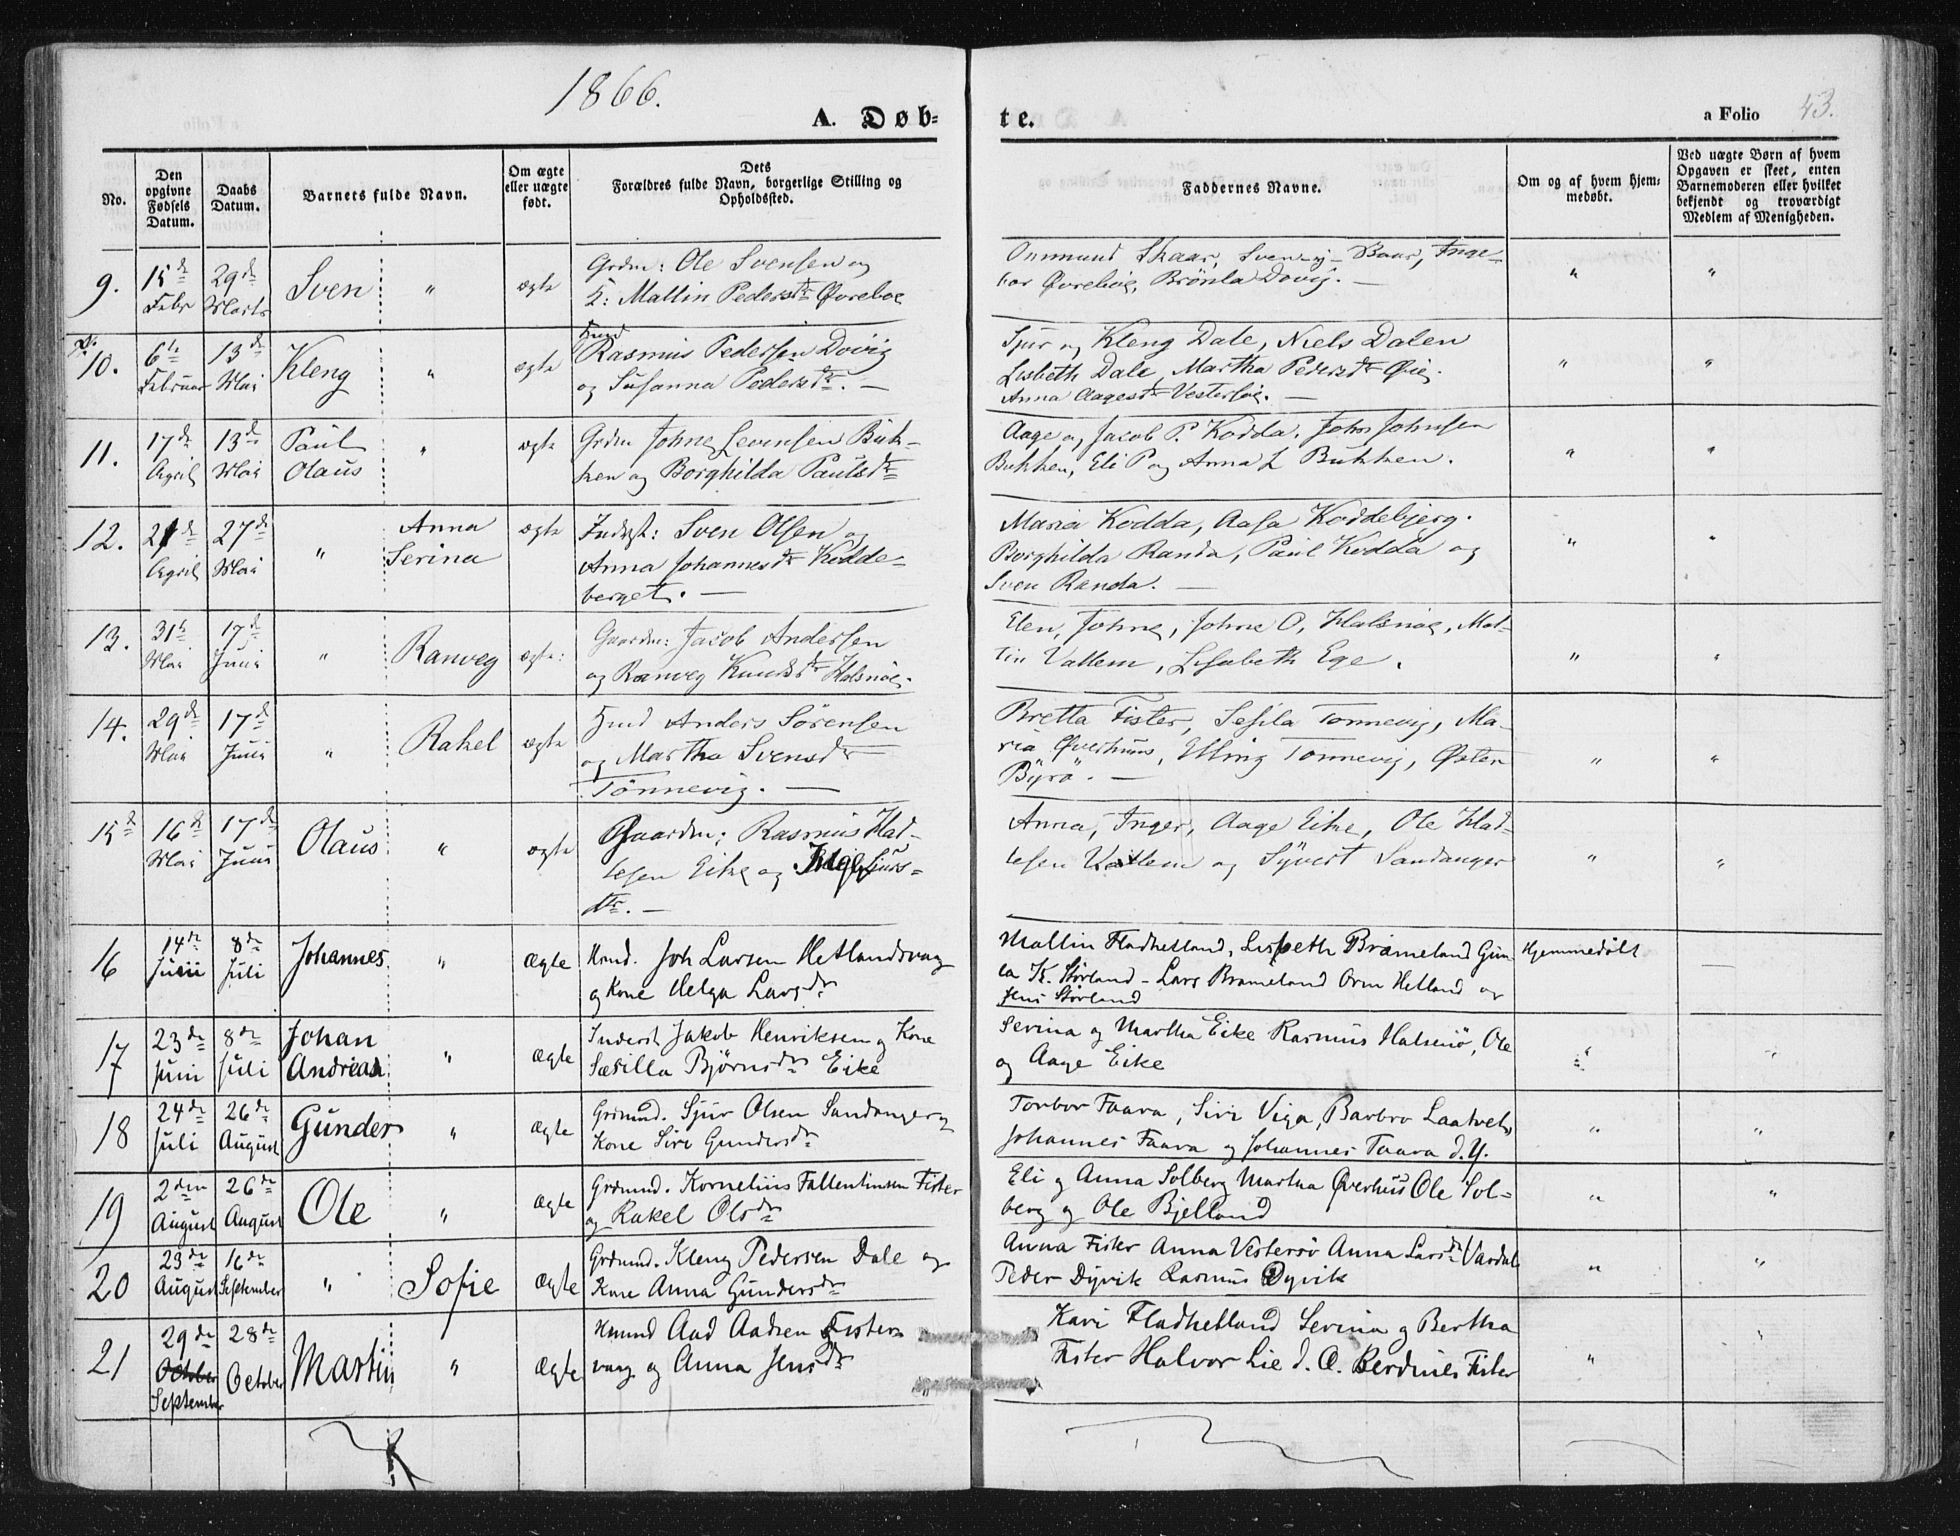 1866.
A. Døb-
te.
a Folio 43.
No.
Den opgivne Fødsels Datum.
Daabs Datum.
Barnets fulde Navn.
Om ægte eller uægte født.
Dets Forældres fulde Navn, borgerlige Stilling og Opholdssted.
Faddernes Navne.
Om og af hvem hjemmedøbt.
Ved uægte Børn af hvem Opgaven er skeet, enten Barnemoderen eller hvilket bekjendt og troværdigt Medlem af Menigheden.
9. 15de Febr 29de Marts Sven " ægte
Grdm: Ole Svensen og
K: Mallin Pedersdtr Øvrebøe
Onnmund Skaar, Baar, Inge-
bor Øvrebøe, Brønla Dovig. —
" "
10. 6te Februar 13de Mai Kleng " ægte
Hmd
Rasmus Pedersen Dovig
og Susanna Pedersdtr. —
Sjur og Kleng Dale, Niels Dalen
Lisbeth Dale, Martha Pedersdtr Øie.
Anna Aagesdtr Vestersøe. —
" "
11. 17de April 13de Mai Paul Olaus " ægte
Grdm Johne Sevensen Buk-
ken og Borghilda Paulsdtr
Aage og Jacob P. Kodda. John Johnsen
Bukken, Eli P og Anna L Bukken.
" "
12. 21de April 27de Mai " Anna Serina ægte
Inderst: Sven Olsen og
Anna Johannesdtr Kodde-
berget. —
Maria Kodda, Aasa Koddebjerg.
Borghilda Randa, Paul Kodda og
Sven Randa. —
" "
13. 31te Mai 17de Juni " Ranveg ægte:
Gaardm: Jacob Andersen
og Ranveg Knudsdtr Halsnøe.
Elen, Johne, Johne O, Halsnøe, Mal-
lin Vallem, Lisabeth Ege.
" "
14. 29de Mai 17de Juni " Rakel ægte
Hmd Anders Sørensen
og Martha Svensdtr
Tønnevig. —
Bretta Fister, Sesila Tonnevig, Ma-
ria Øverhuus, Elling Tonnevig, Østen
Byrø. —
" "
15d 16de Mai 17de Juni Olaus " ægte
Gaardm: Rasmus Had-
lesen Eike og Sjurs-
dtr. —
Anna, Inger, Aage Eike, Ole Had-
lesen Vatlem og Syvert Sandanger
" "
16 14de Juni 8de Juli Johannes " Ægte
Hmd. Joh Larsen Hetlandsvag
og Kone Helga Larsdr
Mallin Fladhetland, Lisbeth Brameland Gun
la K. Størland - Lars Brameland Orm Hetland og
Jens Størland
Hjemmedøbt —
17 23de Juni 8de Juli Johan Andreas " Ægte
Inderst Jakob Henriksen og Kone
Sæsilla Bjørnsdr Eike
Serina og Martha Eike Rasmus Halsnø, Ole
og Aage Eike
" "
18 24de Juli 26de August Gunder " Ægte
Grdmnd. Sjur Olsen Sandanger og
Kone Siri Gundersdr
Torbor Faava, Siri Viga, Barbro Laatvet,
Johannes Faava og Johannes Faava d.Y.
" "
19 2den August 26de August Ole " Ægte
Grdmnd. Kornelius Fallentinsen Fister
og Rakel Olsdr
Eli og Anna Solberg Martha Øverhus Ole Sol-
berg og Ole Bjelland
" "
20 23de August 16de September " Sofie Ægte
Grdmnd. Kleng Pedersen Dale og
Kone Anna Gundersdr
Anna Fister Anna Vestersø Anna Larsdr Vardal
Peder Dyvik Rasmus Dyvik
" "
21 29de October September 28de October Martin " Ægte
Hmnd Aad Aadsen Fister-
vaag og Anna Jensdr
Kari Fladhetland Serina og Bertha
Fister Halvor Lie d. Æ. Berdines Fister
" "